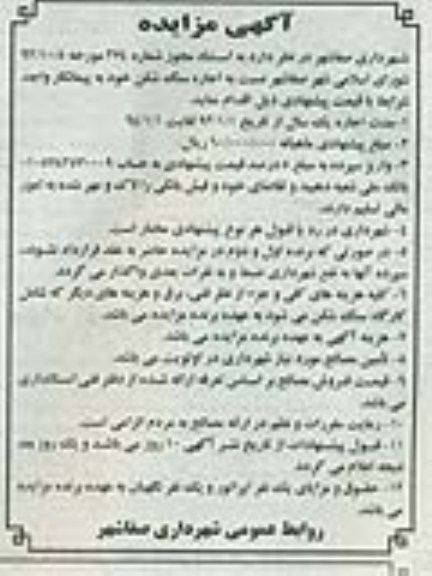 آگهی مزایده
شهرداری صفاشهر در نظر دارد به استناد مجوز شماره مورخه
شورای اسلامی شهر صفاشهر نسبت به اجاره سنگ شکن خود به پیمانکار واجد
شرایط با قیمت پیشنهادی ذیل اقدام نماید.
۱- مدت اجاره یک سال از تاریخ لغایت
۲- مبلغ پیشنهادی ماهیانه ریال
۳- واریز سپرده به مبلغ ۵ درصد قیمت پیشنهادی به حساب
بانک ملی شعبه و تقاضای خود و فیش بانکی را لاک و مهر شده به امور
مالی تسلیم دارند.
۴- شهرداری در رد یا قبول هر نوع پیشنهادی مختار است.
۵- در صورتی که برنده اول و دوم در مزایده حاضر به عقد قرارداد نشوند،
سپرده آنها به نفع شهرداری ضبط و به نفرات بعدی واگذار می گردد.
۶- کلیه هزینه های کلی و جزء از نظر فنی، برق و هزینه های دیگر که شامل
کارگاه سنگ شکن می شود به عهده برنده مزایده می باشد.
۷- هزینه آگهی به عهده برنده مزایده می باشد.
۸- تأمین مصالح مورد نیاز شهرداری در اولویت می باشد.
۹- قیمت فروش مصالح بر اساس تعرفه ارائه شده از دفتر فنی استانداری
می باشد.
۱۰- رعایت مقررات و نظم در ارائه مصالح به مردم الزامی است.
۱۱- قبول پیشنهادات از تاریخ نشر آگهی ۱۰ روز می باشد و یک روز بعد
نتیجه اعلام می گردد.
۱۲- حقوق و مزایای یک نفر اپراتور و یک نفر نگهبان به عهده برنده مزایده
می باشد.
روابط عمومی شهرداری صفاشهر